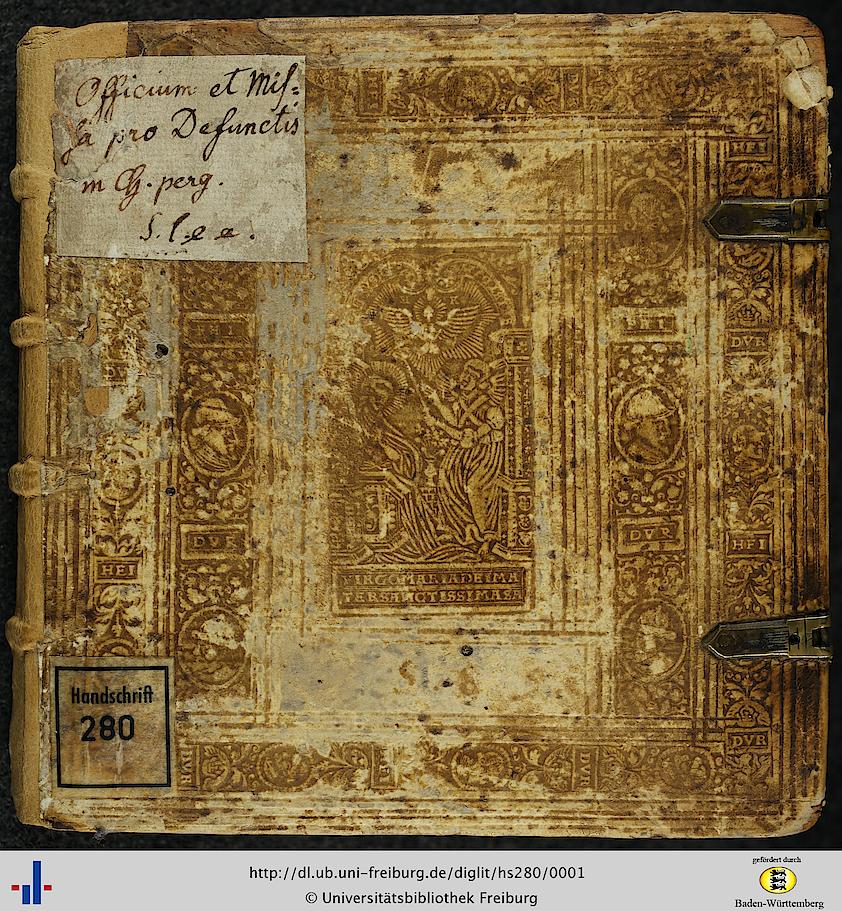 Officium et Mis=
sa pro Defunctis
in Ch. perg.
S. l. e a.
HEI
DVR
HEI
DVR
HEI
DVR
DVR
HEI
VIRGO MARIA DEI MA
TER SANCTISSIMA SA
DVR
Handschrift
280
http://dl.ub.uni-freiburg.de/diglit/hs280/0001
© Universitätsbibliothek Freiburg
gefördert durch
Baden-Württemberg